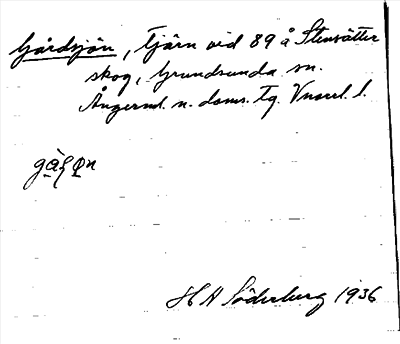 Gårdsjön, tjärn vid 89 å Stensätter
skog, Grundsunda sn.
Ångerml. n. doms. tg. Vnorrl. l.
H A Söderberg 1936